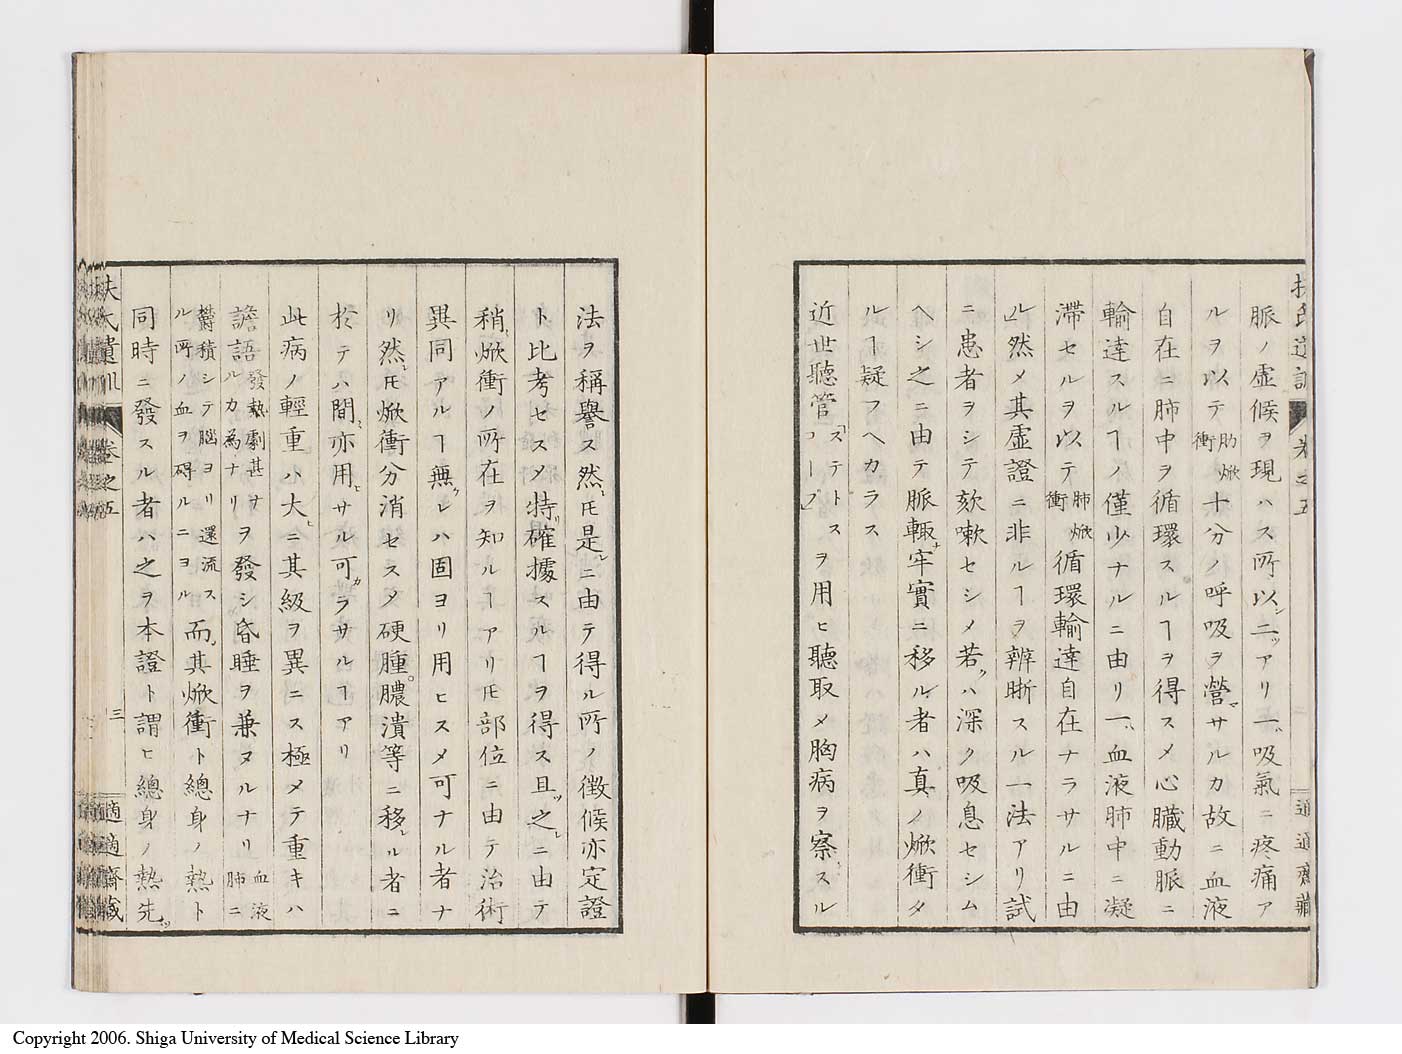 扶氏遺訓 卷之五 適適齋藏
脈ノ虛候ヲ現ハス所以ン二ツアリ一ハ吸氣ニ疼痛ア
ルヲ以テ肋焮衝十分ノ呼吸ヲ營マサルカ故ニ血液
自在ニ肺中ヲ循環スルヿヲ得スメ心臓動脈ニ
輸達スルヿノ僅少ナルニ由リ一ハ血液肺中ニ凝
滯セルヲ以テ肺焮衝循環輸達自在ナラサルニ由
ル」然メ其虛證ニ非ルヿヲ辨晰スル一法アリ試
ニ患者ヲシテ欬嗽セシメ若クハ深ク吸息セシム
ヘシ之ニ由テ脈輙チ牢實ニ移ル者ハ真ノ焮衝タ
ルヿ疑フヘカラス
近世聽管「ステトスコープ」ヲ用ヒ聽取メ胸病ヲ察スル
法ヲ稱譽ス然レ𪜈是レニ由テ得ル所ノ徴候亦定證
ト比考セスメ特リ確據スルヿヲ得ス且ツ之レニ由テ
稍〻焮衝ノ所在ヲ知ルヿアリ𪜈部位ニ由テ治術
異同アルヿ無ケレハ固ヨリ用ヒスメ可ナル者ナ
リ然レ𪜈焮衝分消セスメ硬腫。膿潰等ニ移レル者ニ
於テハ間〻亦用ヒサル可カラサルヿアリ
此病ノ輕重ハ大ヒニ其級ヲ異ニス極メテ重キハ
譫語發熱劇甚ナルカ為ナリヲ發シ昏睡ヲ兼ヌルナリ血液肺ニ
鬱積シテ腦ヨリ還流スル所ノ血ヲ碍ルニヨル而メ其焮衝ト總身ノ熱ト
同時ニ發スル者ハ之ヲ本證ト謂ヒ總身ノ熱先ツ
扶氏遺訓 卷之五 三 適適齋藏
Copyright 2006. Shiga University of Medical Science Library